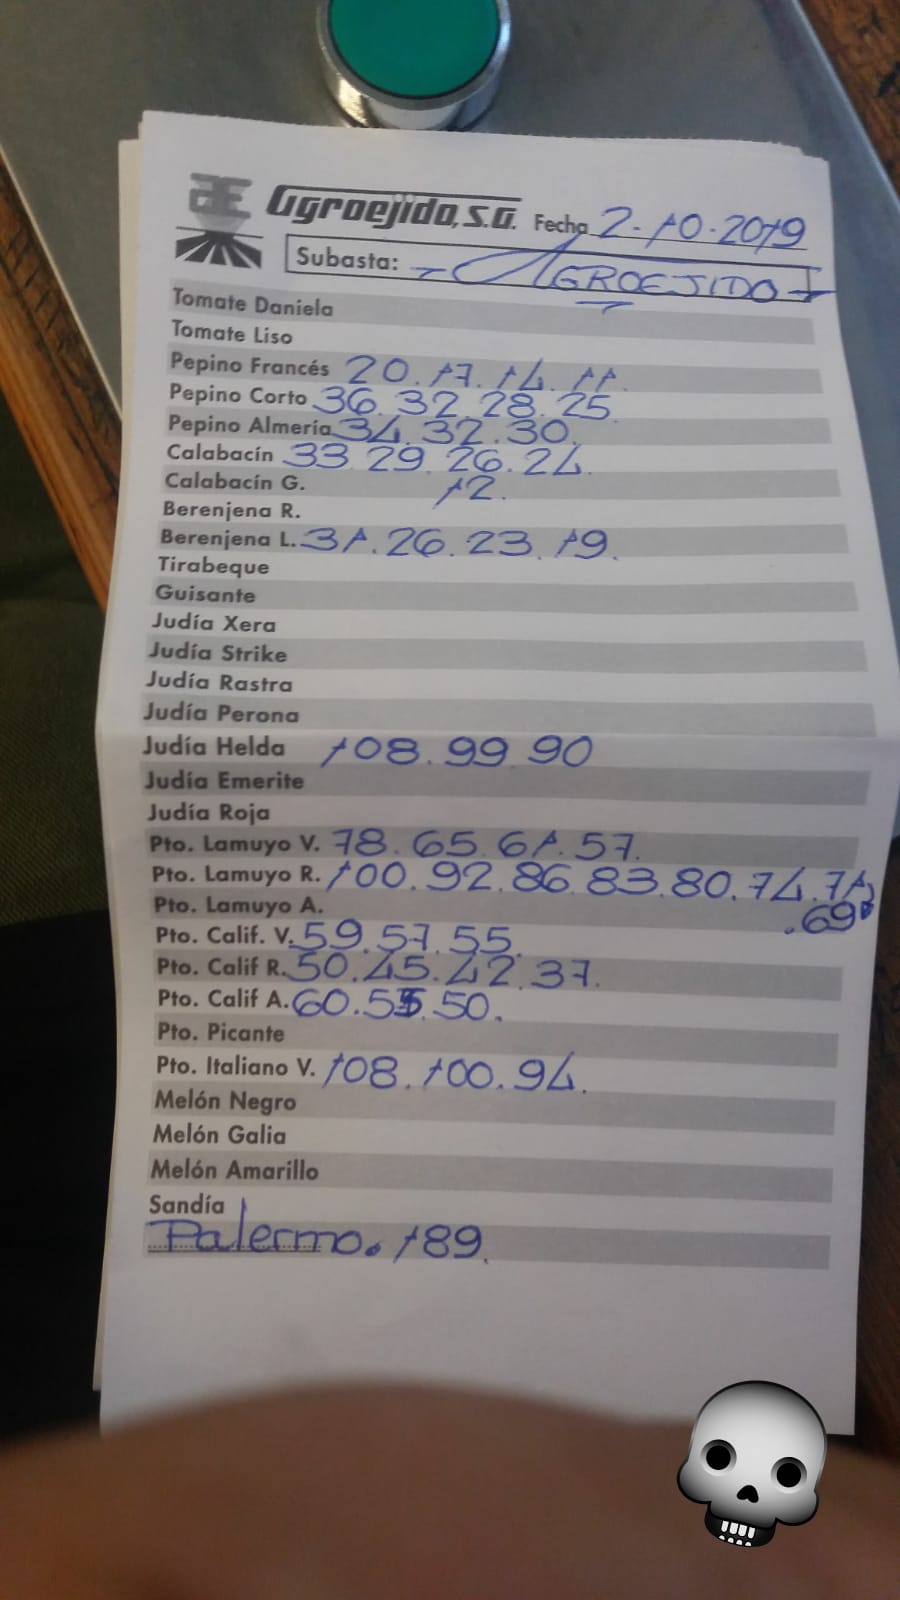 Agroejido, S.A. Fecha 2-10-2019
Subasta: - AGROEJIDO -
Tomate Daniela
Tomate Liso
Pepino Francés 20. 17. 14. 11.
Pepino Corto 36. 32. 28. 25.
Pepino Almería 34. 32. 30.
Calabacín 33. 29. 26. 24.
Calabacín G. 12.
Berenjena R.
Berenjena L. 31. 26. 23. 19.
Tirabeque
Guisante
Judía Xera
Judía Strike
Judía Rastra
Judía Perona
Judía Helda 108. 99. 90
Judía Emerite
Judía Roja
Pto. Lamuyo V. 78. 65. 61. 57.
Pto. Lamuyo R. 100. 92. 86. 83. 80. 74. 71
Pto. Lamuyo A. .69
Pto. Calif. V. 59. 57. 55.
Pto. Calif R. 50. 45. 42. 37.
Pto. Calif A. 60. 55. 50.
Pto. Picante
Pto. Italiano V. 108. 100. 94.
Melón Negro
Melón Galia
Melón Amarillo
Sandía
Palermo. 189.